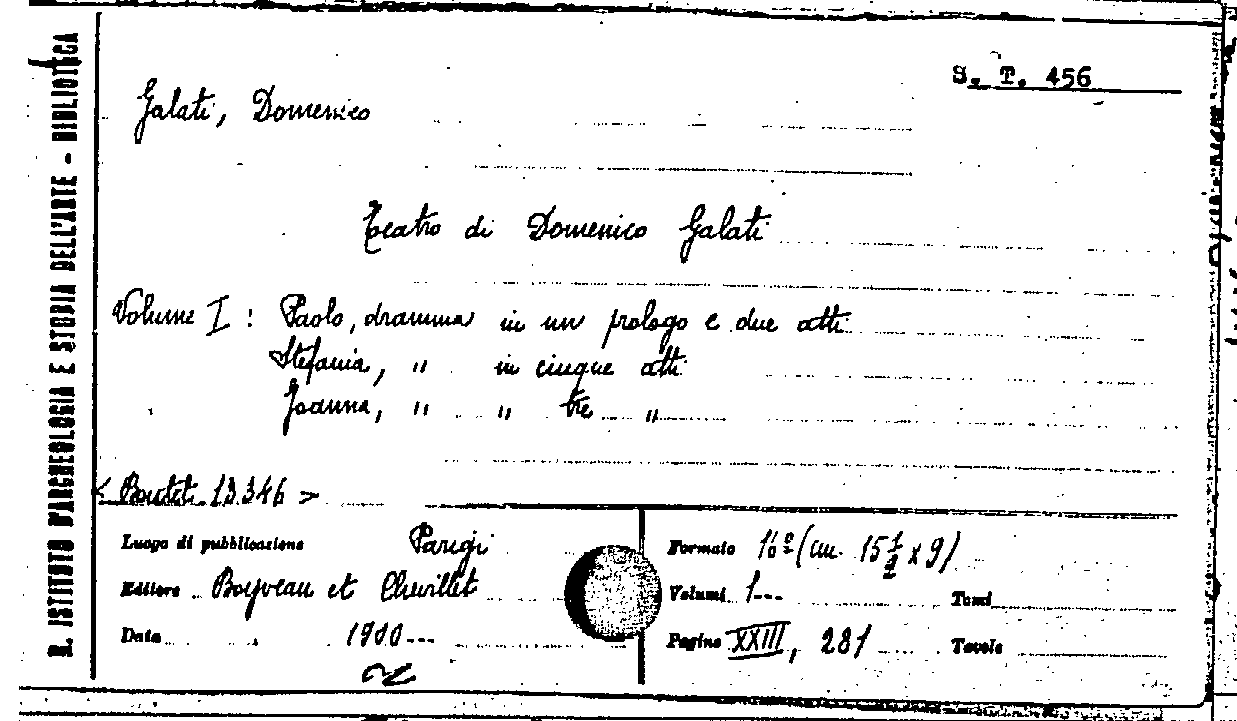 R. ISTITUTO D'ARCHEOLOGIA E STORIA DELL'ARTE - BIBLIOTECA
S. T. 456
Galati, Domenico
Teatro di Domenico Galati
Volume I : Paolo, dramma in un prologo e due atti
Stefania, " in cinque atti
Joanna, " " tre "
< Boutet 13346 >
Luogo di pubblicazione Parigi
Editore Boyveau et Chevillet
Data 1900---
Formato 16º (cm. 15 1/2 x 9)
Volumi 1---
Tomi
Pagine XXIII, 281
Tavole